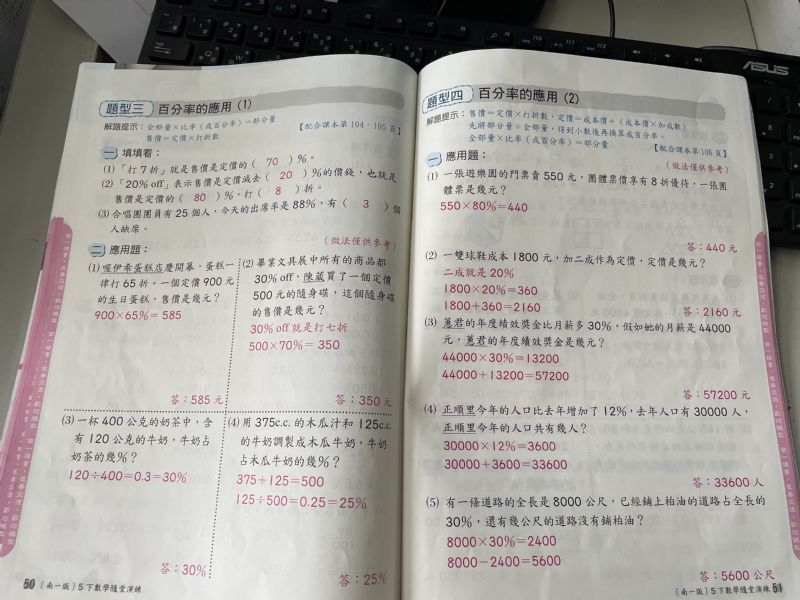 ASUS
題型三 百分率的應用(1)
解題提示：全部量×比率（或百分率）=部分量
售價=定價×打折數
【配合課本第104、105頁】
一 填填看：
(1)「打7折」就是售價是定價的( 70 )%。
(2)「20% off」表示售價是定價減去( 20 )%的價錢，也就是
售價是定價的( 80 )%，打( 8 )折。
(3)合唱團團員有25個人，今天的出席率是88%，有( 3 )個
人缺席。
二 應用題：
(做法僅供參考)
(1)喔伊希蛋糕店慶開幕，蛋糕一
律打65折。一個定價900元
的生日蛋糕，售價是幾元？
900×65%=585
答：585元
(2)畢業文具展中所有的商品都
30% off，陳葳買了一個定價
500元的隨身碟，這個隨身碟
的售價是幾元？
30% off就是打七折
500×70%=350
答：350元
(3)一杯400公克的奶茶中，含
有120公克的牛奶，牛奶占
奶茶的幾%？
120÷400=0.3=30%
答：30%
(4)用375c.c.的木瓜汁和125c.c.
的牛奶調製成木瓜牛奶，牛奶
占木瓜牛奶的幾%？
375+125=500
125÷500=0.25=25%
答：25%
50 〔南一版〕5下數學隨堂演練
題型四 百分率的應用(2)
解題提示：售價=定價×打折數，定價=成本價+（成本價×加成數）
先將部分量÷全部量，得到小數後再換算成百分率。
全部量×比率（或百分率）=部分量
【配合課本第106頁】
一 應用題：
(做法僅供參考)
(1)一張遊樂園的門票賣550元，團體票價享有8折優待，一張團
體票是幾元？
550×80%=440
答：440元
(2)一雙球鞋成本1800元，加二成作為定價，定價是幾元？
二成就是20%
1800×20%=360
1800+360=2160
答：2160元
(3)蕙君的年度績效獎金比月薪多30%，假如她的月薪是44000
元，蕙君的年度績效獎金是幾元？
44000×30%=13200
44000+13200=57200
答：57200元
(4)正順里今年的人口比去年增加了12%，去年人口有30000人，
正順里今年的人口共有幾人？
30000×12%=3600
30000+3600=33600
答：33600人
(5)有一條道路的全長是8000公尺，已經鋪上柏油的道路占全長的
30%，還有幾公尺的道路沒有鋪柏油？
8000×30%=2400
8000-2400=5600
答：5600公尺
〔南一版〕5下數學隨堂演練 51